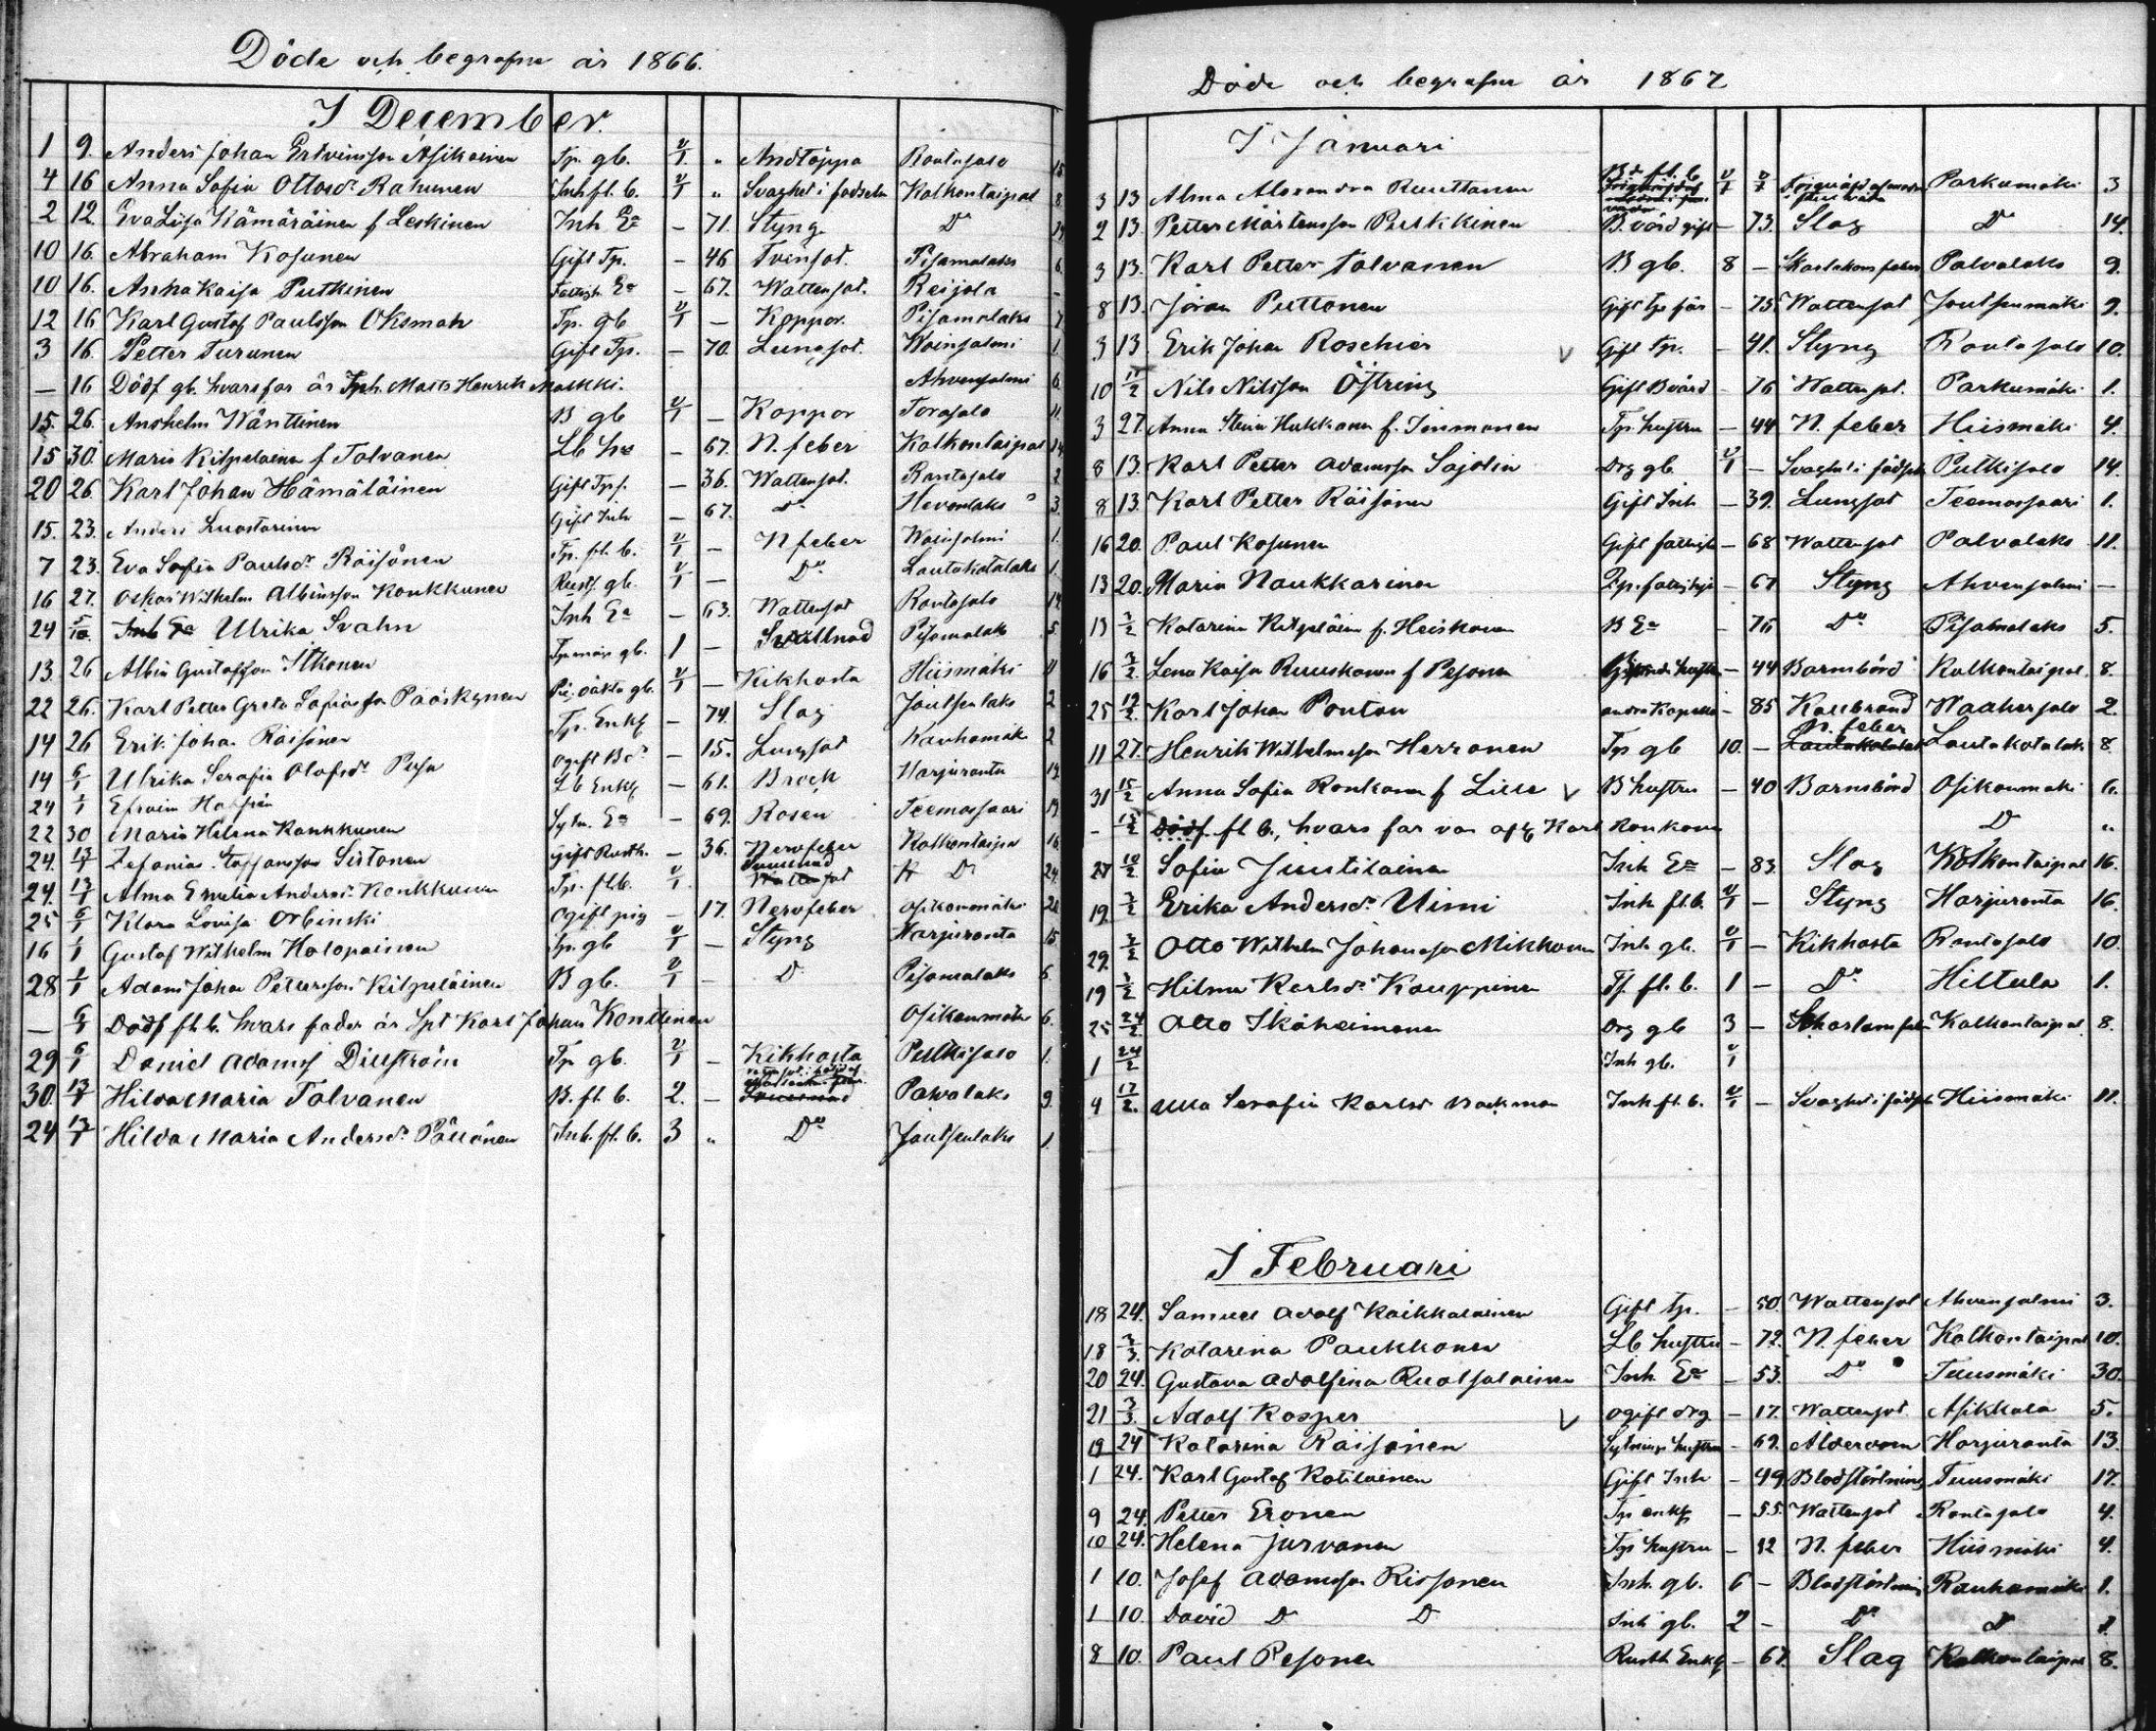 Döde och begrafne år 1866.
I December.
1 9. Anders Johan Asikainen Tp. gb. " Andtäppa Rantasalo 15
4 16 Anna Sofia Ottosdr Rahunen Inh fl. b. " Svaghet i fodseln Kolkontaipal 8
2 12. Eva Lisa Kämäräinen f Leskinen Inh Ea - 71. Styng Do
10 16. Abraham Kosunen Gift Tp. - 46 Tvinsot. Pisamalaks 6.
10 16. Anna Kaisa Putkinen Ea - 67. Wattensot. Reijola -
12 16 Karl Gustaf Paulsson Oksman Tp. gb - Koppor. Pisamalaks 7
3 16. Petter Turunen Gift Tp. - 70. Lungsot. Woinsalmi 1.
- 16 Dödf gb. hvars far är Inh. Mats Henrik Malkki. Ahvensalmi 6.
15. 26. Anshelm Wänttinen B gb - Koppor Torasalo 11.
15 30. Maria Kilpelainen f Tolvanen Lb - 67. N. feber Kolkontaipal 14
20 26. Karl Johan Hämäläinen Gift Tp. - 36. Wattensot. Rantasalo 2
15. 23. Anders Luostarinen Gift Inh - 67. Do 3.
7 23. Eva Sofia Paulsdr Räisönen Tp. fl. b. - N feber Woinsalmi 1.
16 27. Oskar Wilhelm Albinsson Konkkunen Rusth. gb. - Do Lautakotalaks 1.
24 5/10 Inh Ea Ulrika Svahn Inh Ea - 63. Wattensot Rantasalo 14
13. 26 Albin Gustafsson Itkonen gb. 1 - Svullnad Pisamalaks 5.
22 26. Karl Petter Greta Sofiasson Pääskynen Pig. oäkta gb. - Kikhosta Hiismäki 4
14 26 Erik Johan Räisönen Tp. Enkl - 74. Slag Joutsenlaks 2
14 6/1 Ulrika Serafia Olofsdr Ogift - 15. Lungsot 2
24 1/1 Efraim Lb Enkl - 61. Brock Harjuranta 14.
22 30 Maria Helena Kankkunen Sytn. Ea - 69. Rosen Teemassaari
24. 13/1 Zefanias Staffansson Sistonen Gift Rusth. - 36. Nervfeber Kolkontaipa 16
24. 13/1 Alma Emelia Andersdr Konkkunen Tp. fl b. Svullnad Do 24.
25 6/1 Klara Lovisa Orbinski Ogift pig - 17. Nervfeber Osikonmäki 28
16 1/1 Gustaf Wilhelm Holopainen Tp. gb - Styng Harjuranta 15
28 1/1 Adam Johan Pettersson Kilpeläinen B gb. - Do Pisamalaks 6.
- 6/1 Dödf fl. b. hvars fader är Karl Johan Konttinen Osikonmäki 6.
29 6/1 Daniel Adamss Dillström Tp gb. - Kikhosta Putkisalo 1.
30. 13/1 Hilda Maria Tolvanen B. fl. b. 2. - Palvalaks 9
24 13/1 Hilda Maria Andersdr Päivinen Inh. fl. b. 3 " Do Joutsenlaks 1.
Döde och begrafne år 1867
I Januari
3 13 Alma Alexandra Ruuttanen B fl. b Parkumäki 3
2 13. Petter Mårtensson Pulkkinen B. värd gift - 73. Slag Do 14.
3 13. Karl Petter Tolvanen B gb. 8 - Palvalaks 9.
8 13. Jöran Puttonen Gift - 75. Wattensot Joutsenmäki 9.
3 13 Erik Johan Roschier Gift Tp. - 41. Styng Rantasalo 10.
10 Nils Nilsson Östring Gift B värd - 76 Wattensot. Parkumäki 1.
3 27. Anna Stina Hukkanen f. Immonen Tp. hustru - 44 N. feber Hiismäki 4.
8 13. Karl Petter Adamsson Sajolin Drg gb. - Svaghet i födsel Putkisalo 14.
8 13. Karl Petter Räisönen Gift Inh - 39. Lungsot Teemassaari 1.
16 20. Paul Kosunen Gift fattigh - 68 Wattensot Palvalaks 11.
13 20. Maria Naukkarinen - 67 Styng Ahvensalmi -
13 3/2 Katarina Kilpeläinen f. Heiskanen B Ea - 76 Do Pisamalaks 5.
16 3/2 Lena Kaisa Ruuskanen f Pesonen hustru - 44 Barnsbörd Kolkontaipal. 8.
25 Karl Johan Pontan andra Kaplan - 85 Kallbrand Waahersalo 2.
11 27. Henrik Wilhelmsson Herranen Tp gb 10. - N. feber Lautakotalaks 8
31 Anna Sofia Ronkanen f Lille B hustru - 40 Barnsbörd Osikonmäki 6.
- Dödf. fl b., hvars far var Karl Ronkanen Do "
27 10/2 Sofia Juutilainen Inh Ea - 83. Slag Kolkontaipal 16.
19. 3/2 Erika Andersdr Uimi Inh fl. b. - Styng Harjuranta 16.
29. 3/2 Otto Wilhelm Johansson Mikkonen Inh gb. - Kikhosta Rantasalo 10.
19 3/2 Hilma Karlsdr Kauppinen fl. b. 1 - Do Hiltula 1.
25 24/2 Otto Ikäheimonen Drg gb 3 - Kolkontaipal 8.
1 24/2 Inh gb.
4 17/2. Ulla Serafia Karlsdr Backman Inh fl. b. - Svaghet i födsl Hiismäki 11.
I Februari
18 24. Samuel Adolf Kaikkalainen Gift Tp. - 50. Wattensot Ahvensalmi 3.
18 3/3. Katarina Paukkonen Lb hustru - 72. N. feber Kolkontaipal 10.
20 24. Gustava Adolfina Ruotsalainen Inh Ea - 53. Do Tuusmäki 30.
21 3/3. Adolf Kasper ogift drg - 17. Wattensot Asikkala 5.
19 24 Katarina Räisönen Sytnings hustru - 69. Alderdom Harjuranta 13.
1 24. Karl Gustaf Kotilainen Gift Inh - 49 Blodstörtning Tuusmäki 17.
9 24. Petter Eronen Tp enkl - 55. Wattensot Rantasalo 4.
10 24. Helena Jurvanen Tp hustru - N. feber Hiismäki 4.
1 10. Josef Adamsson Rissanen Inh. gb. 6 - Blodstörtning Rauhamäki 1.
1 10. David Do Do Inh gb. 2 - Do Do 1.
8 10. Paul Pesonen Rusth Enkl - 67. Slag Kolkontaipal 8.